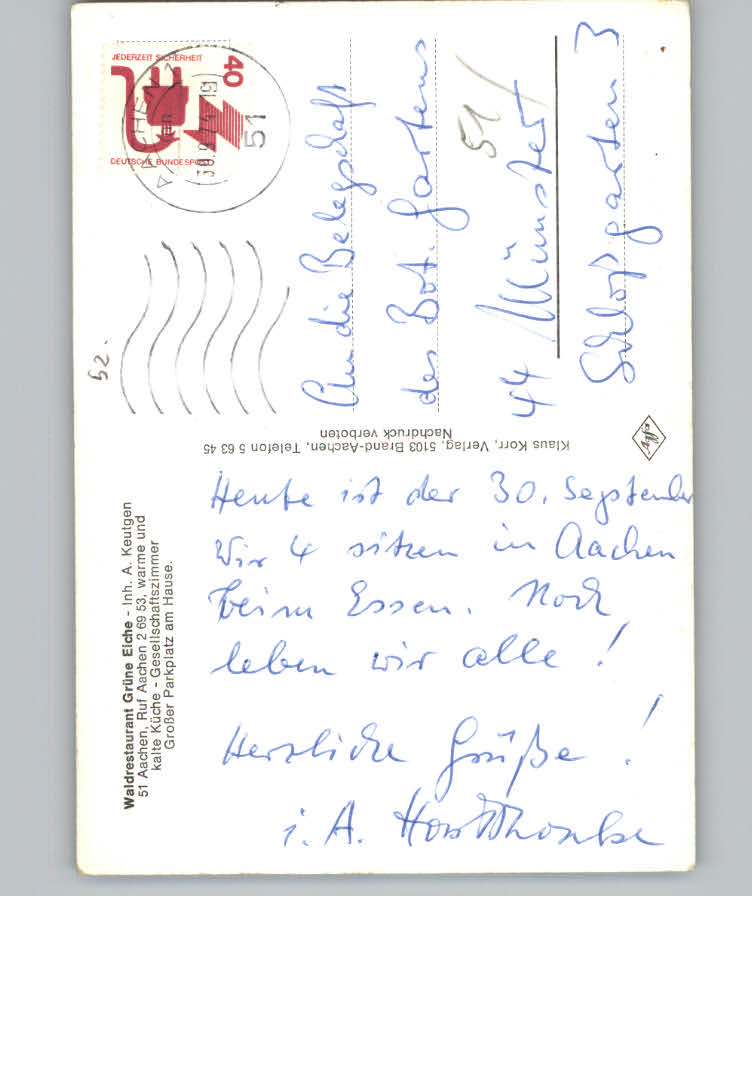 Waldrestaurant Grüne Eiche - Inh. A. Keutgen
51 Aachen, Ruf Aachen 2 69 53, warme und
kalte Küche - Gesellschaftszimmer
Großer Parkplatz am Hause.
Heute ist der 30. September
Wir 4 sitzen in Aachen
beim Essen. Noch
leben wir alle!
Herzliche Grüße!
i. A. Horst
Klaus Korr, Verlag, 5103 Brand-Aachen, Telefon 5 63 45
Nachdruck verboten
52.
JEDERZEIT SICHERHEIT
40
DEUTSCHE BUNDESPOST
AACHEN
51
An die Belegschaft
des Bot. Gartens
51/
44 Münster
Schloßgarten 3